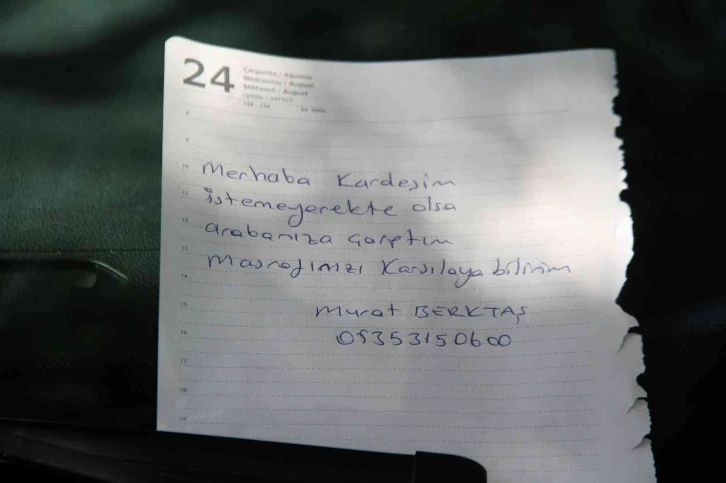 24
Çarşamba / Ağustos
Wednesday / August
Mittwoch / August
среда / август
8
9
10
Merhaba Kardeşim
11
istemeyerekte olsa
12
arabanıza çarptım
13
Masrafınızı Karşılaya bilirim
14
15
Murat BERKTAŞ
05353150600
16
17
18
19